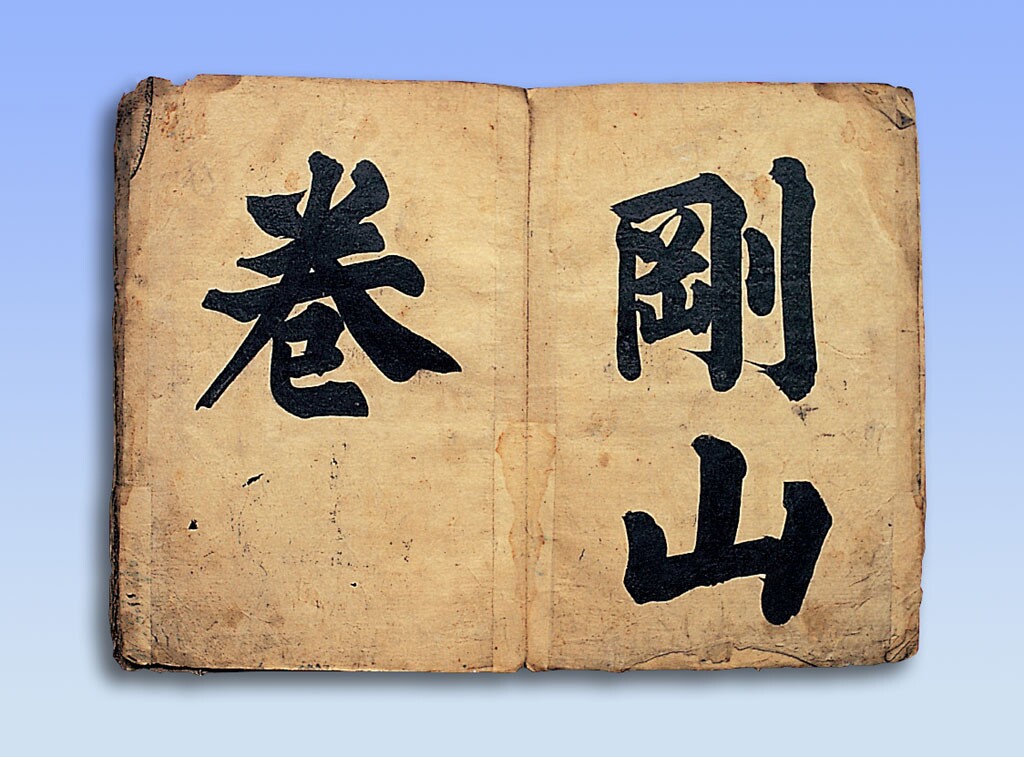 剛山
卷